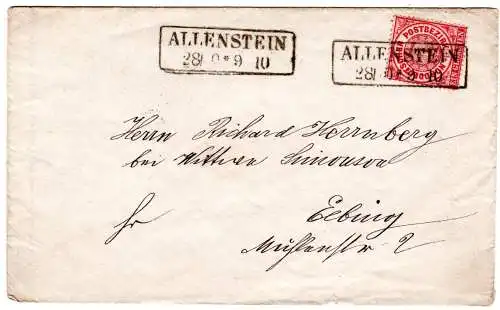 ALLENSTEIN
28 9 * 9 10
ALLENSTEIN
POSTBEZIRK
Herrn Richard Herrnberg
bei Wittwe Simonson
Elbing
Mühlenstr 2